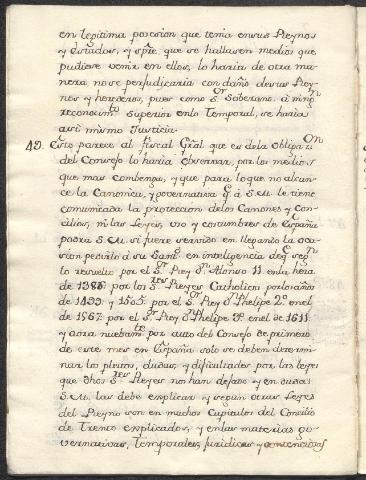 en legitima posesion que tenia en sus Reynos
y estados, y spre. que se hallasen medios que
pudiese venir en ellos, lo haria de otra ma
nera no se perjudicaria con daño de sus Rey
nos y herederos, pues como Sr. Soberano â ningn
reconocimto. Superior en lo Temporal, se haria
asi mismo Justicia.
49. Esto parece al fiscal Gral. que es de la obligazn.
del Consejo lo haria observar, por los medios
que mas combenga, y que para lo que no alcan
ce la Canonica, y governativa q. â S.M. le tiene
comunicada la proteccion de los Canones y Con
cilios, ni las Leyes, uso y costumbres de España
podra S.M. si fuere servido en llegando la oca
sion pedirlo â su Santd. en inteligencia de q. segn.
lo resuelto por el Sr. Rey Dn. Alonso 11 en la hera
de 1386 por los Sres. Reyes Catholicos por los años
de 1499 y 1505 por el Sr. Rey Dn. Phelipe 2º. en el
de 1567 por el Sr. Rey Dn. Phelipe 3º. en el de 1611
y aora nuebamte. por auto del Consejo de primero
de este mes en España solo se deben determi
nar los pleitos, dudas, y dificultades por las leyes
que dhos Sres. Reyes nos han dejado y en dudas
S.M. las debe explicar y segun otras Leyes
del Reyno son en muchos Capitulos del Concilio
de Trento explicados, y en las materias go
vernativas, Temporales, Juridicas y contenciosas